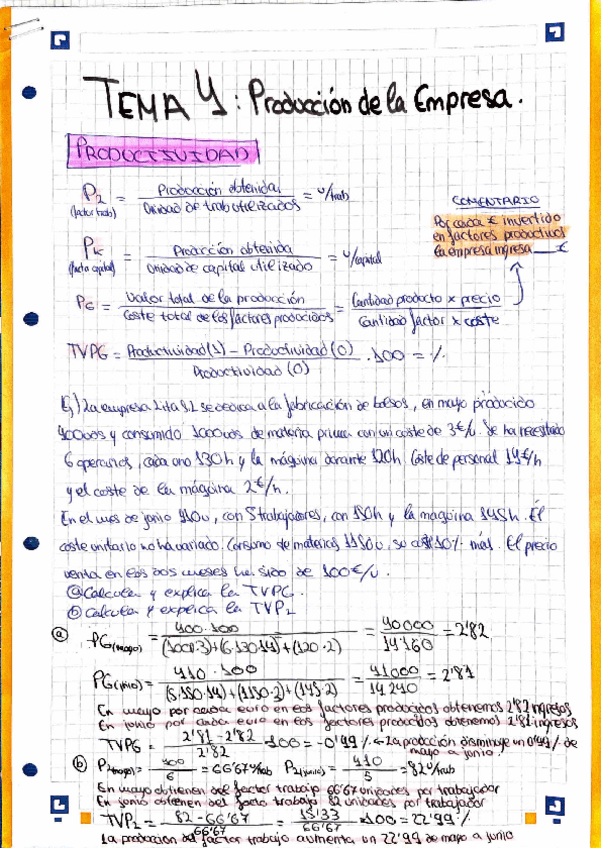 TEMA 4: Producción de la Empresa.
PRODUCTIVIDAD
P₂ = Producción obtenida / Unidad de trab utilizados = u/trab
(factor trab)
COMENTARIO
Por cada € invertido
en factores productivos
la empresa ingresa ___€
Pk = Producción obtenida / Unidad de capital utilizado = u/capital
(facto capital)
PG = Valor total de la producción / Coste total de los factores producidos = Cantidad producto x precio / Cantidad factor x coste
TVPG = Productividad (1) - Productividad (0) / Productividad (0) · 100 = %
se dedica a la fabricación de bolsos, en mayo producido
400 uds y consumido 1000 uds de materia prima con un coste de 3€/u. Se ha necesitado
6 operarios, cada uno 130h y la máquina durante 120h. Coste de personal 14€/h
y el coste de la máquina 2€/h.
En el mes de junio 410u, con 5 trabajadores, con 150h y la maquina 145h. El
coste unitario no ha variado. Consumo de materias 1150u, su 10% más. El precio
venta en los dos meses ha sido de 100€/u.
a) Calcula y explica la TVPG.
b) Calcula y explica la TVP₂
a) PG(mayo) = 400·100 / (1000·3)+(6·130·14)+(120·2) = 40000 / 14160 = 2'82
PG(junio) = 410·100 / (5·150·14)+(1150·2)+(145·2) = 41000 / 14240 = 2'81
En mayo por cada euro en los factores producidos obtenemos 2'82 ingresos
En junio por cada euro en los factores producidos obtenemos 2'81 ingresos
TVPG = 2'81 - 2'82 / 2'82 · 100 = -0'49% ← La producción disminuye un 0'49% de
mayo a junio.
b) P₂(mayo) = 400 / 6 = 66'67 u/trab P₂(junio) = 410 / 5 = 82 u/trab
En mayo obtienen del factor trabajo 66'67 unidades por trabajador
En junio obtienen del facto trabajo 82 unidades por trabajador
TVP₂ = 82 - 66'67 / 66'67 = 15'33 / 66'67 · 100 = 22'99%
La produccion del factor trabajo aumenta un 22'99 de mayo a junio